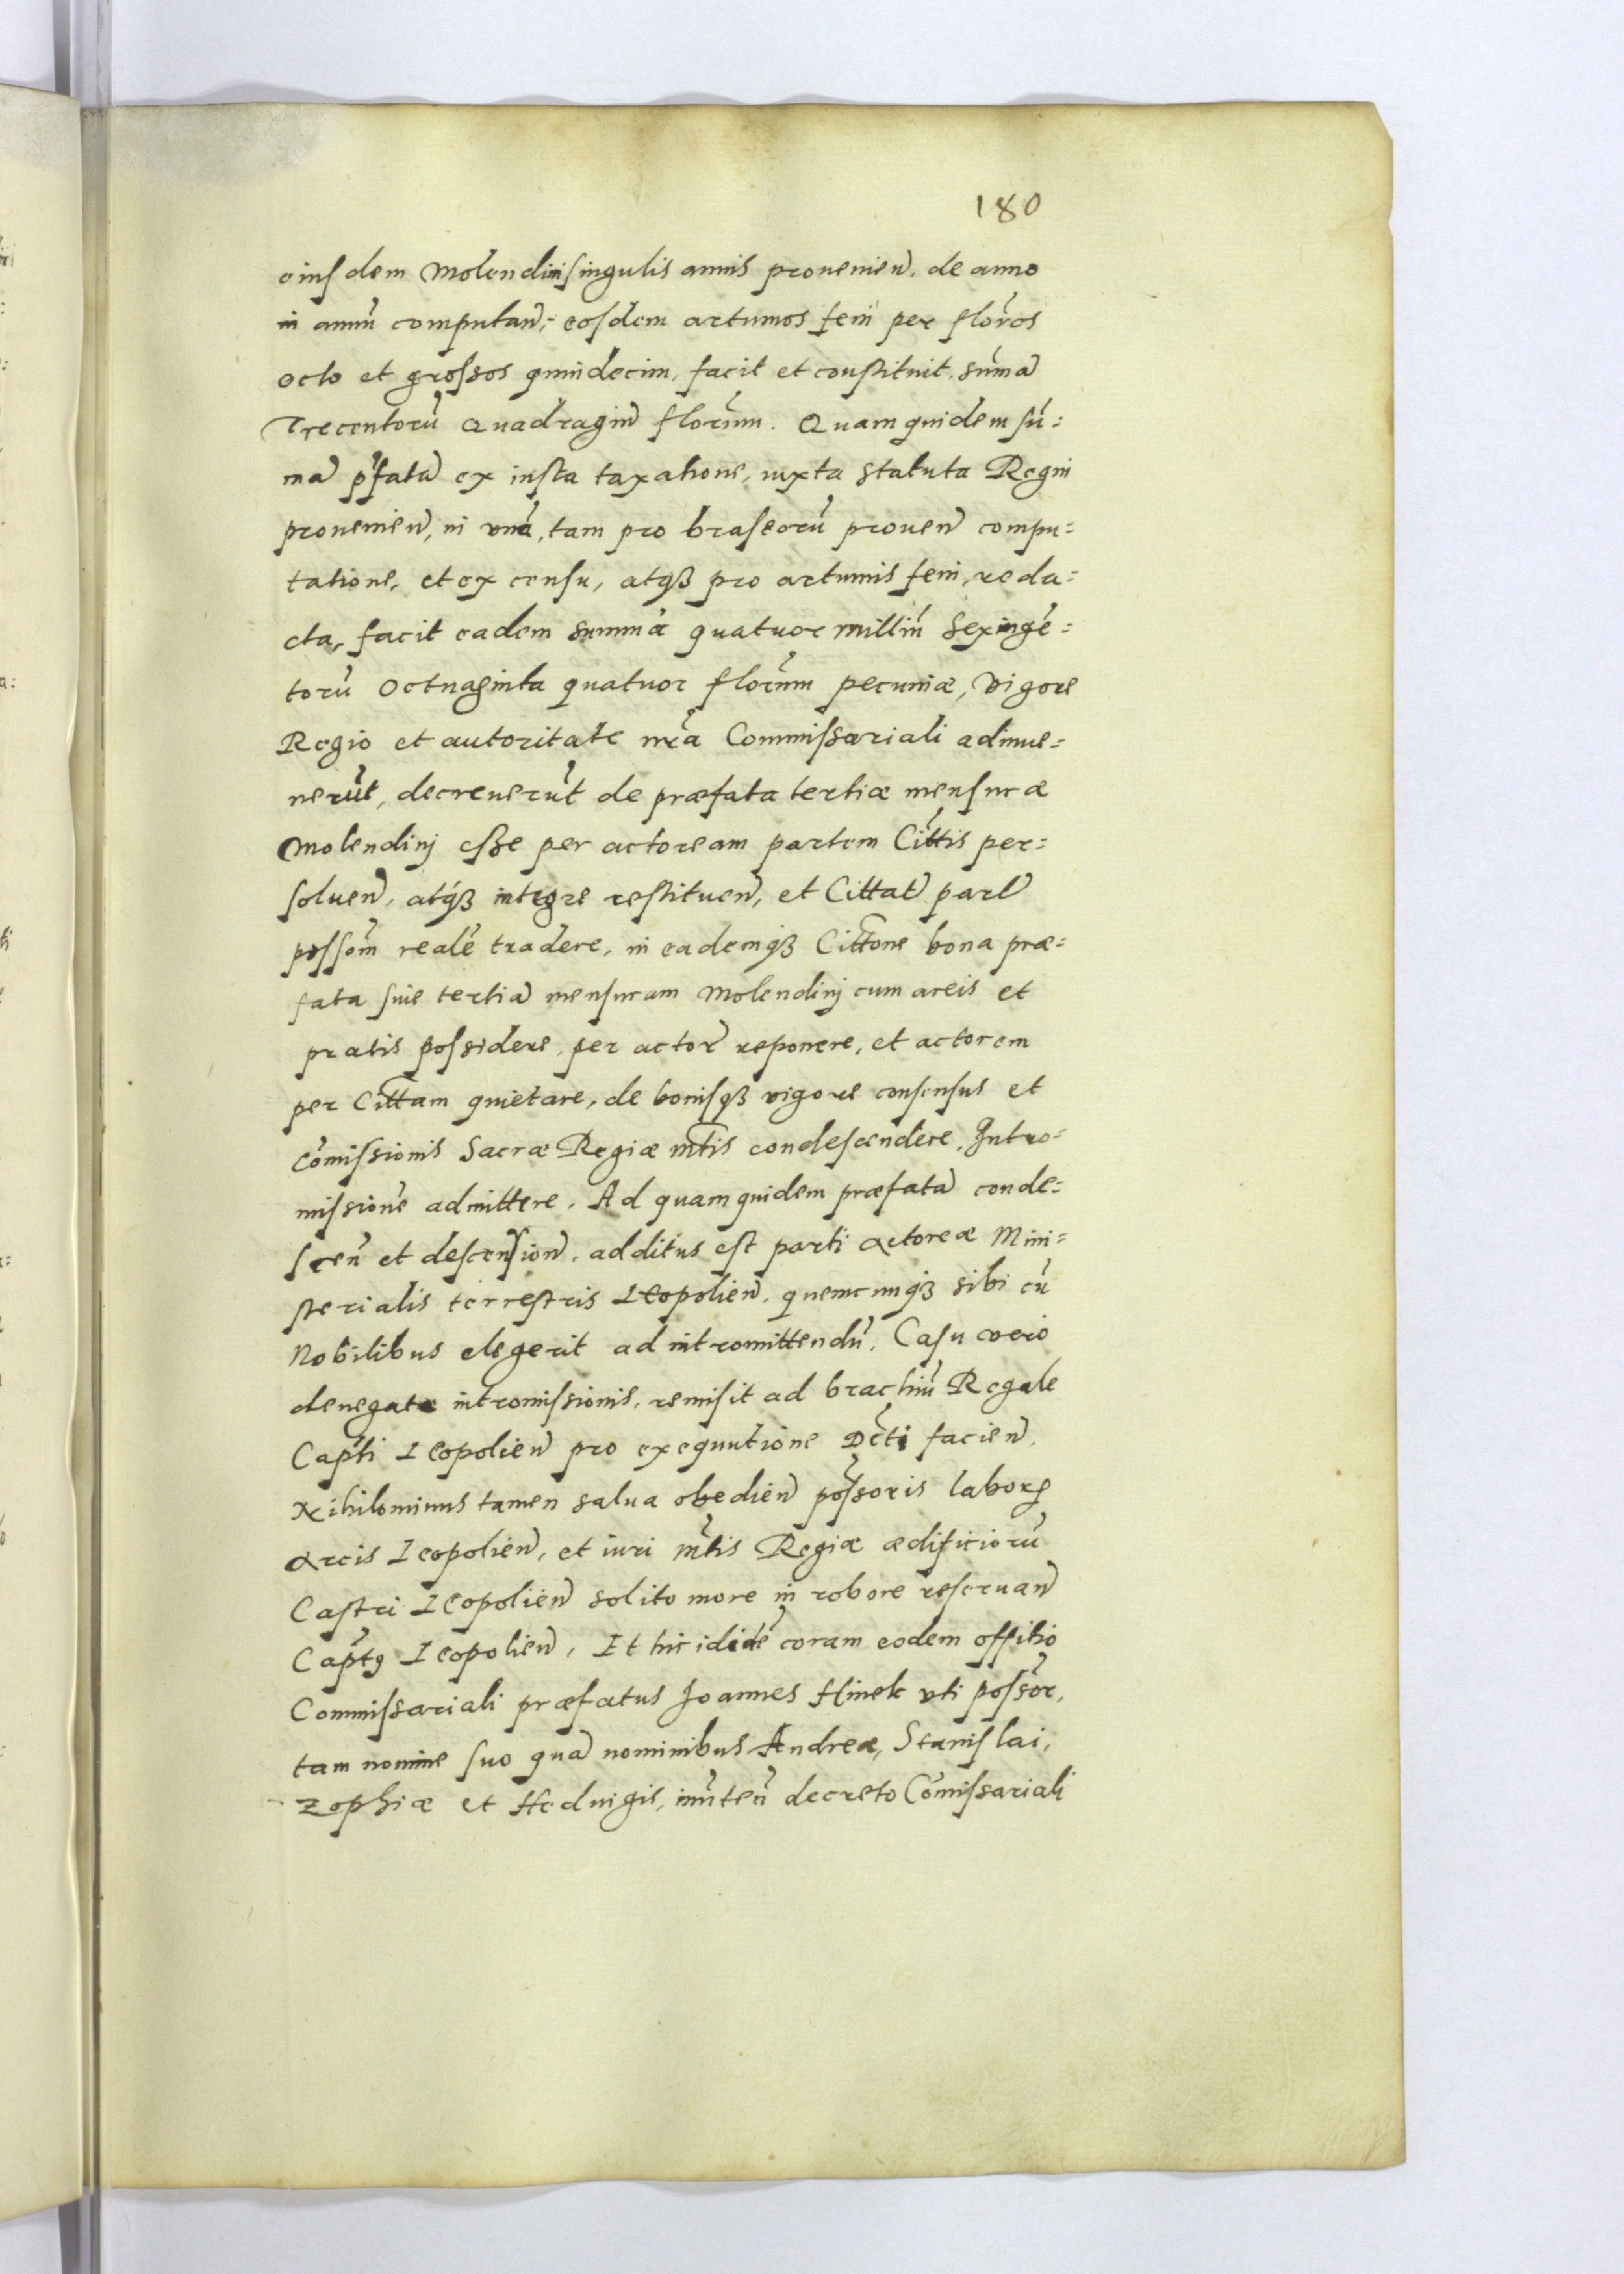 180
eiusdem Molendini singulis annis prouenien̄. de anno
in annū computan̄, eosdem acrumos feni per florōs
octo et grossos quindecim, facit et constituit, sūmā
Trecentorū Quadragin̄ florūm. Quamquidem sū=
mā p̄fatā ex iusta taxatione, iuxta statuta Regni
prouenien̄, in vnā, tam pro braseorū prouen̄ compu=
tatione, et ex censu, atqꝫ pro acrumis feni, reda=
cta, facit eadem summa quatuor milliū Sexingē=
torū Octuaginta quatuor florūm pecuniæ, vigore
Regio et autoritate nr̄a Commissariali adinue=
nerūt, decreuerūt de præfata tertiæ mensuræ
Molendinj esse per actoream partem Cittis per=
soluen̄, atqꝫ integre restituen̄, et Cittatæ part̄
possom̄ realē tradere, in eademqꝫ Cittone bona præ=
fata siue tertiā mensuram Molendinj cum areis et
pratis possidere, per actor̄ reponere, et actorem
per Cittam quietare, de bonisqꝫ vigore consensus et
cōmissionis Sacræ Regiæ Mtis condescendere, Intro=
missionē admittere. Ad quamquidem præfatā conde=
scen̄ et descension̄. additus est parti actoreæ Mini=
sterialis terrestris Leopolien̄. quemcunqꝫ sibi cū
Nobilibus elegerit ad intromittendū. Casu vero
denegatæ intromissionis, remisit ad brachiū Regale
Capti Leopolien̄ pro exequutione Dc̄ti facien̄.
Nihilominus tamen salua obedien̄ pōssoris laborꝫ
Arcis Leopolien̄, et iuri Mtis Regiæ ædificiorū
Castri Leopolien̄ solito more in robore reseruan̄
Captꝰ Leopolien̄, Et hic ididē coram eodem offitio
Commissariali præfatus Joannes Hinek vti possōr,
tam nomine suo quā nominibus Andreæ, Stanislai,
Zophiæ et Heduigis, inūten̄ decreto Cōmissariali